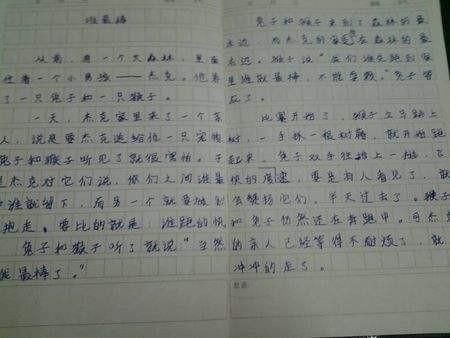 谁最棒
从前，有一个大森林，里面
住着一个小男孩——杰克。他养
了一只兔子和一只猴子。
一天，杰克家里来了一个客
人，说是要杰克送给他一只宠物
兔子和猴子听见了就很害怕。于
是杰克对它们说，你们之间谁最
棒谁就留下，而另一个就要被别
抱走。要比的就是：谁跑的快
兔子和猴子听了就说"当然
我最棒了。"
兔子和猴子来到了森林的最
远，杰克的家在森林的最
远。猴子说"我们谁先跑到家
里谁就最棒，不能拿数。"兔子答
应了。
比赛开始了，猴子立马跳上
树，一手抓一根树藤，就开始跑
起来。兔子双手往地上一
快的，要是有人看见了，
会疑惑它们，半天过去了。猴子
和兔子仍然还在奔跑中。可杰克
的亲人已经等得不耐烦了，就
冲冲的走了。